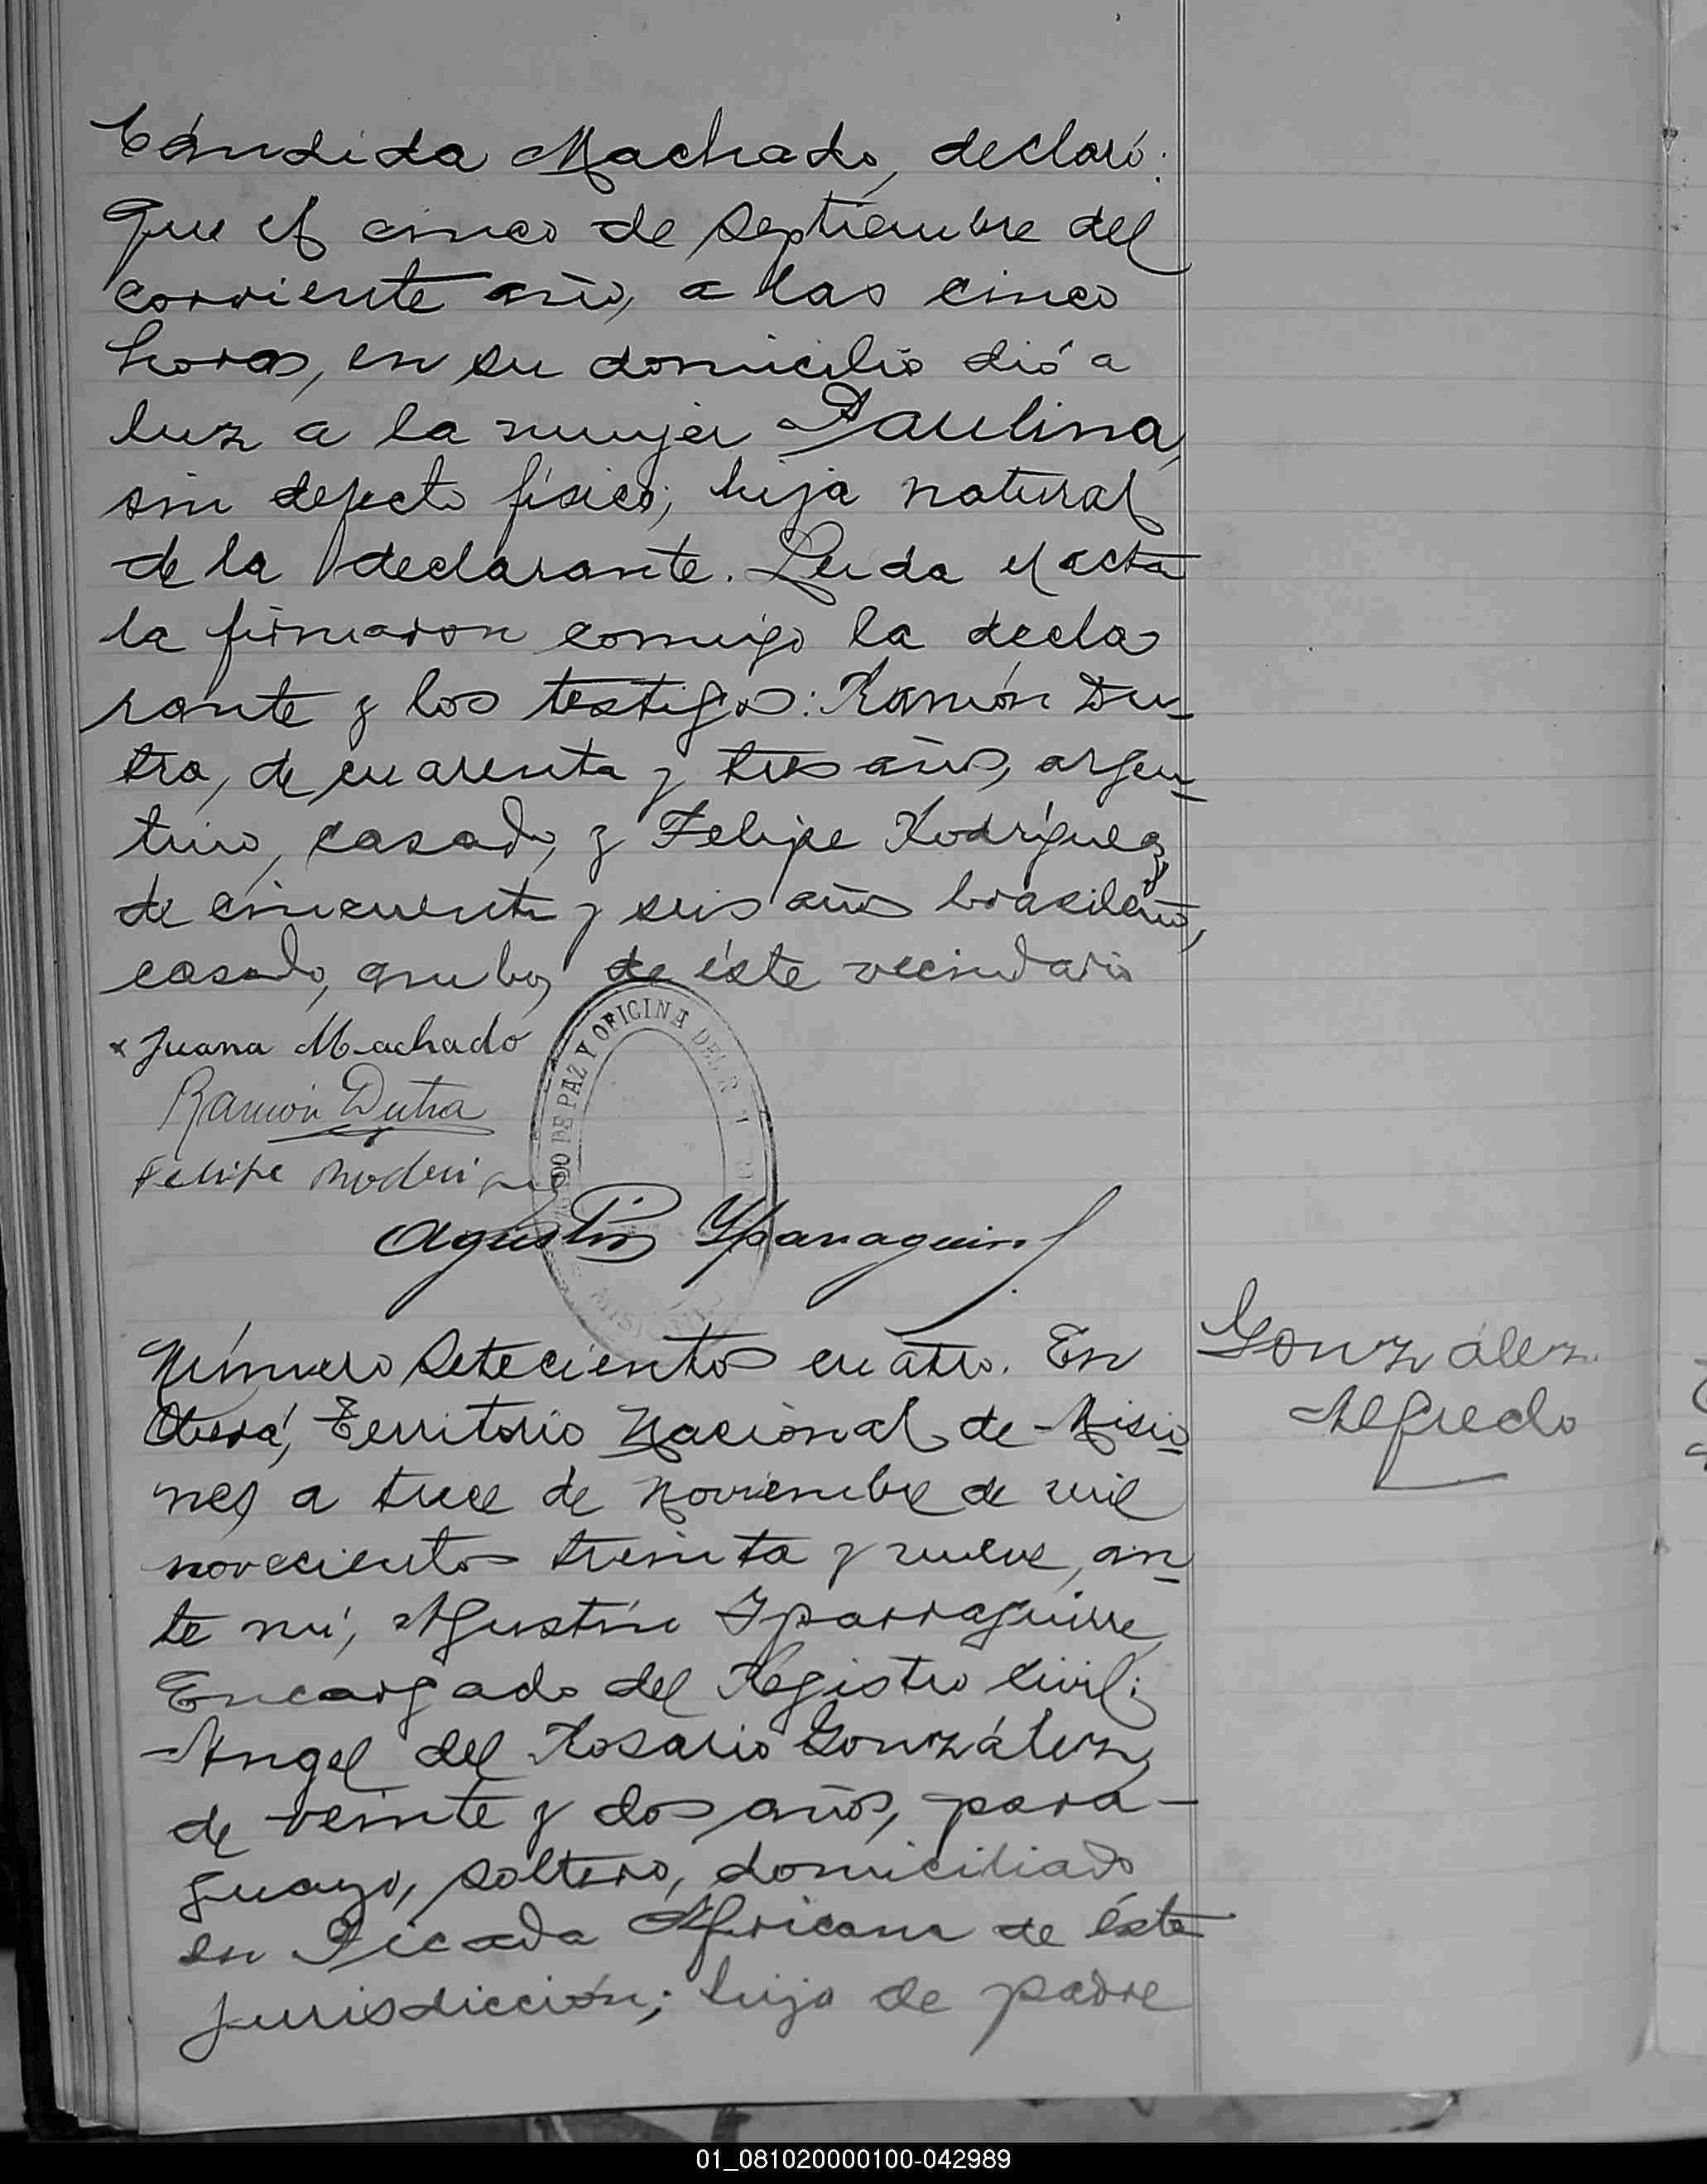 Cándida Machado, declaró:
Que el cinco de septiembre del
corriente año, a las cinco
horas, en su domicilio dió a
luz a la mujer Paulina,
sin defecto físico; hija natural
de la declarante. Leida el acta
la firmaron conmigo la decla
rante y los testigos: Ramón Du-
tra, de cuarenta y tres años, argen-
tino, casado, y Felipe Rodríguez,
de cincuenta y seis años brasileño,
casado, ambos de éste vecindario
x Juana Machado
Ramón Dutra
Felipe Rodrigues
JUZGADO DE PAZ Y OFICINA DEL R
MISIONES
Agustín Yparraguirre
Número setecientos cuatro. En
Oberá, Territorio Nacional de Misio-
nes a trece de Noviembre de mil
novecientos treinta y nueve, an-
te mí, Agustín Iparraguirre,
Encargado del Registro Civil:
Angel del Rosario González,
de veinte y dos años, para-
guayo, soltero, domiciliado
en Picada Africana de ésta
jurisdicción; hijo de padre
González
Alfredo
01_081020000100-042989